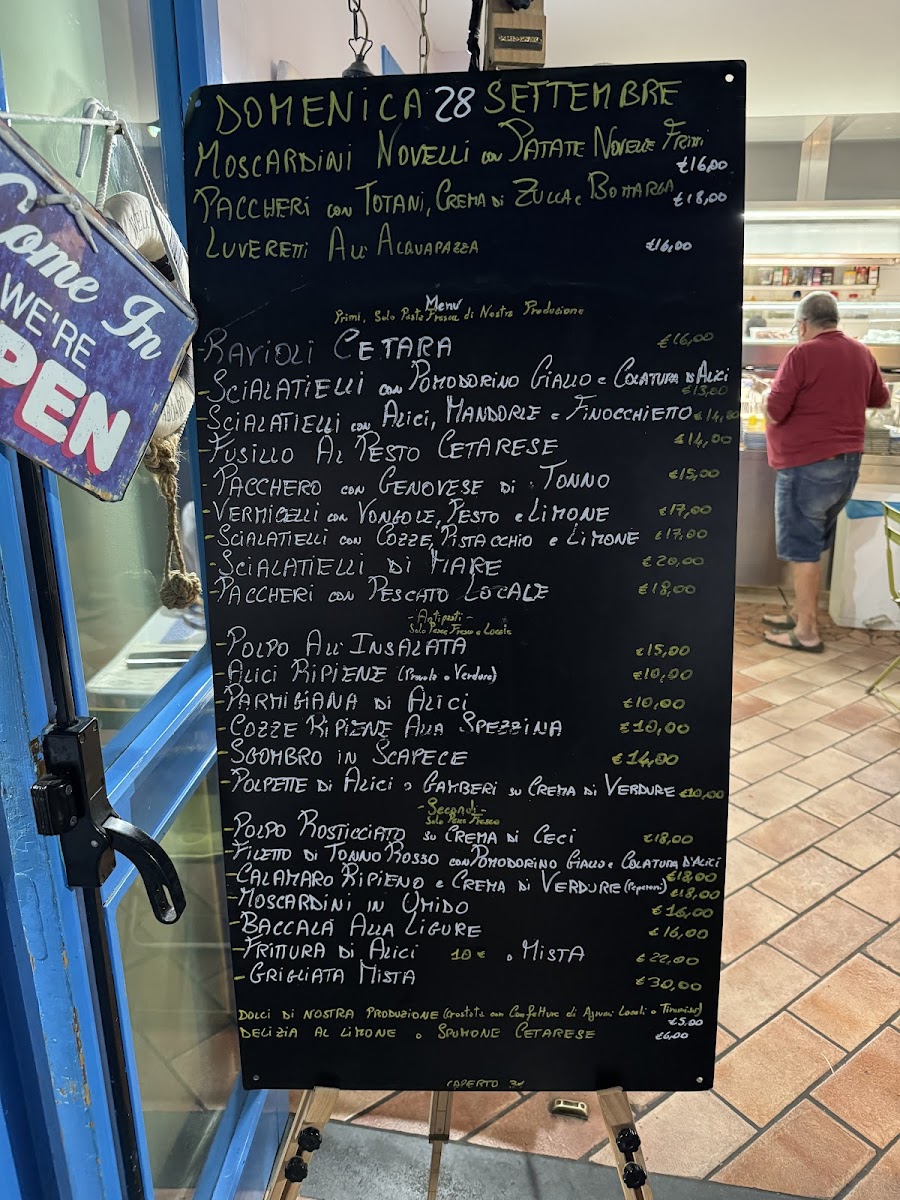 Come In
WE'RE
PEN
DOMENICA 28 SETTEMBRE
MOSCARDINI NOVELLI con PATATE NOVELLE FRITTI €16,00
PACCHERI con TOTANI, CREMA di ZUCCA e BOTTARGA €18,00
LUVERETTI ALL'ACQUAPAZZA €16,00
Menù
Primi, Solo Pasta Fresca di Nostra Produzione
-RAVIOLI CETARA €16,00
-SCIALATIELLI con POMODORINO GIALLO e COLATURA D'ALICI €13,00
-SCIALATIELLI con ALICI, MANDORLE e FINOCCHIETTO €14,00
-FUSILLO AL PESTO CETARESE €14,00
-PACCHERO con GENOVESE DI TONNO €15,00
-VERMICELLI con VONGOLE, PESTO e LIMONE €17,00
-SCIALATIELLI con COZZE, PISTACCHIO e LIMONE €17,00
-SCIALATIELLI DI MARE €20,00
-PACCHERI con PESCATO LOCALE €18,00
-Antipasti-
Solo Pesce Fresco e Locale
-POLPO ALL'INSALATA €15,00
-ALICI RIPIENE (Provola o Verdura) €10,00
-PARMIGIANA DI ALICI €10,00
-COZZE RIPIENE ALLA SPEZZINA €10,00
-SGOMBRO IN SCAPECE €14,00
-POLPETTE DI ALICI o GAMBERI su CREMA DI VERDURE €10,00
-Secondi-
Solo Pesce Fresco
-POLPO ROSTICCIATO su CREMA DI CECI €18,00
-FILETTO DI TONNO ROSSO con POMODORINO GIALLO e COLATURA D'ALICI €18,00
-CALAMARO RIPIENO e CREMA DI VERDURE (Peperoni) €18,00
-MOSCARDINI IN UMIDO €16,00
-BACCALÀ ALLA LIGURE €16,00
-FRITTURA DI ALICI 10€ o MISTA €22,00
-GRIGLIATA MISTA €30,00
DOLCI DI NOSTRA PRODUZIONE (Crostata con Confetture di Agrumi Locali o Tiramisù) €5,00
DELIZIA AL LIMONE o SPUMONE CETARESE €6,00
COPERTO 3€